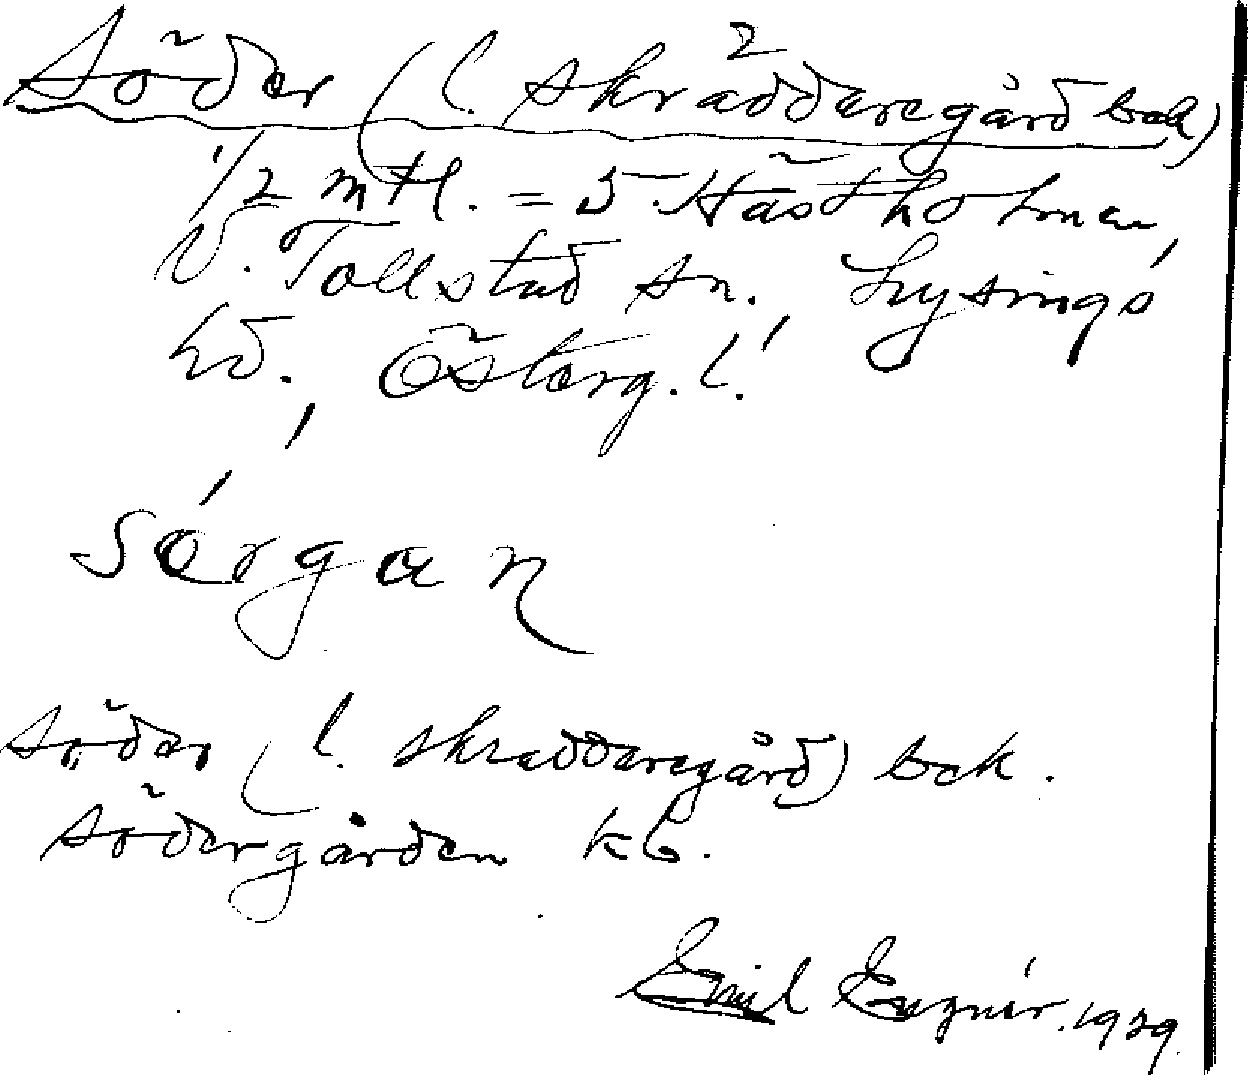 Söder (l. skräddaregård bok)
1/2 mtl. = 5. Hästholmen,
V. Tollstad sn., Lysings
hd., Österg. l.
sǿrgan
söder (l. skraddaregård) bok.
södergården kb.
Emil 1929.